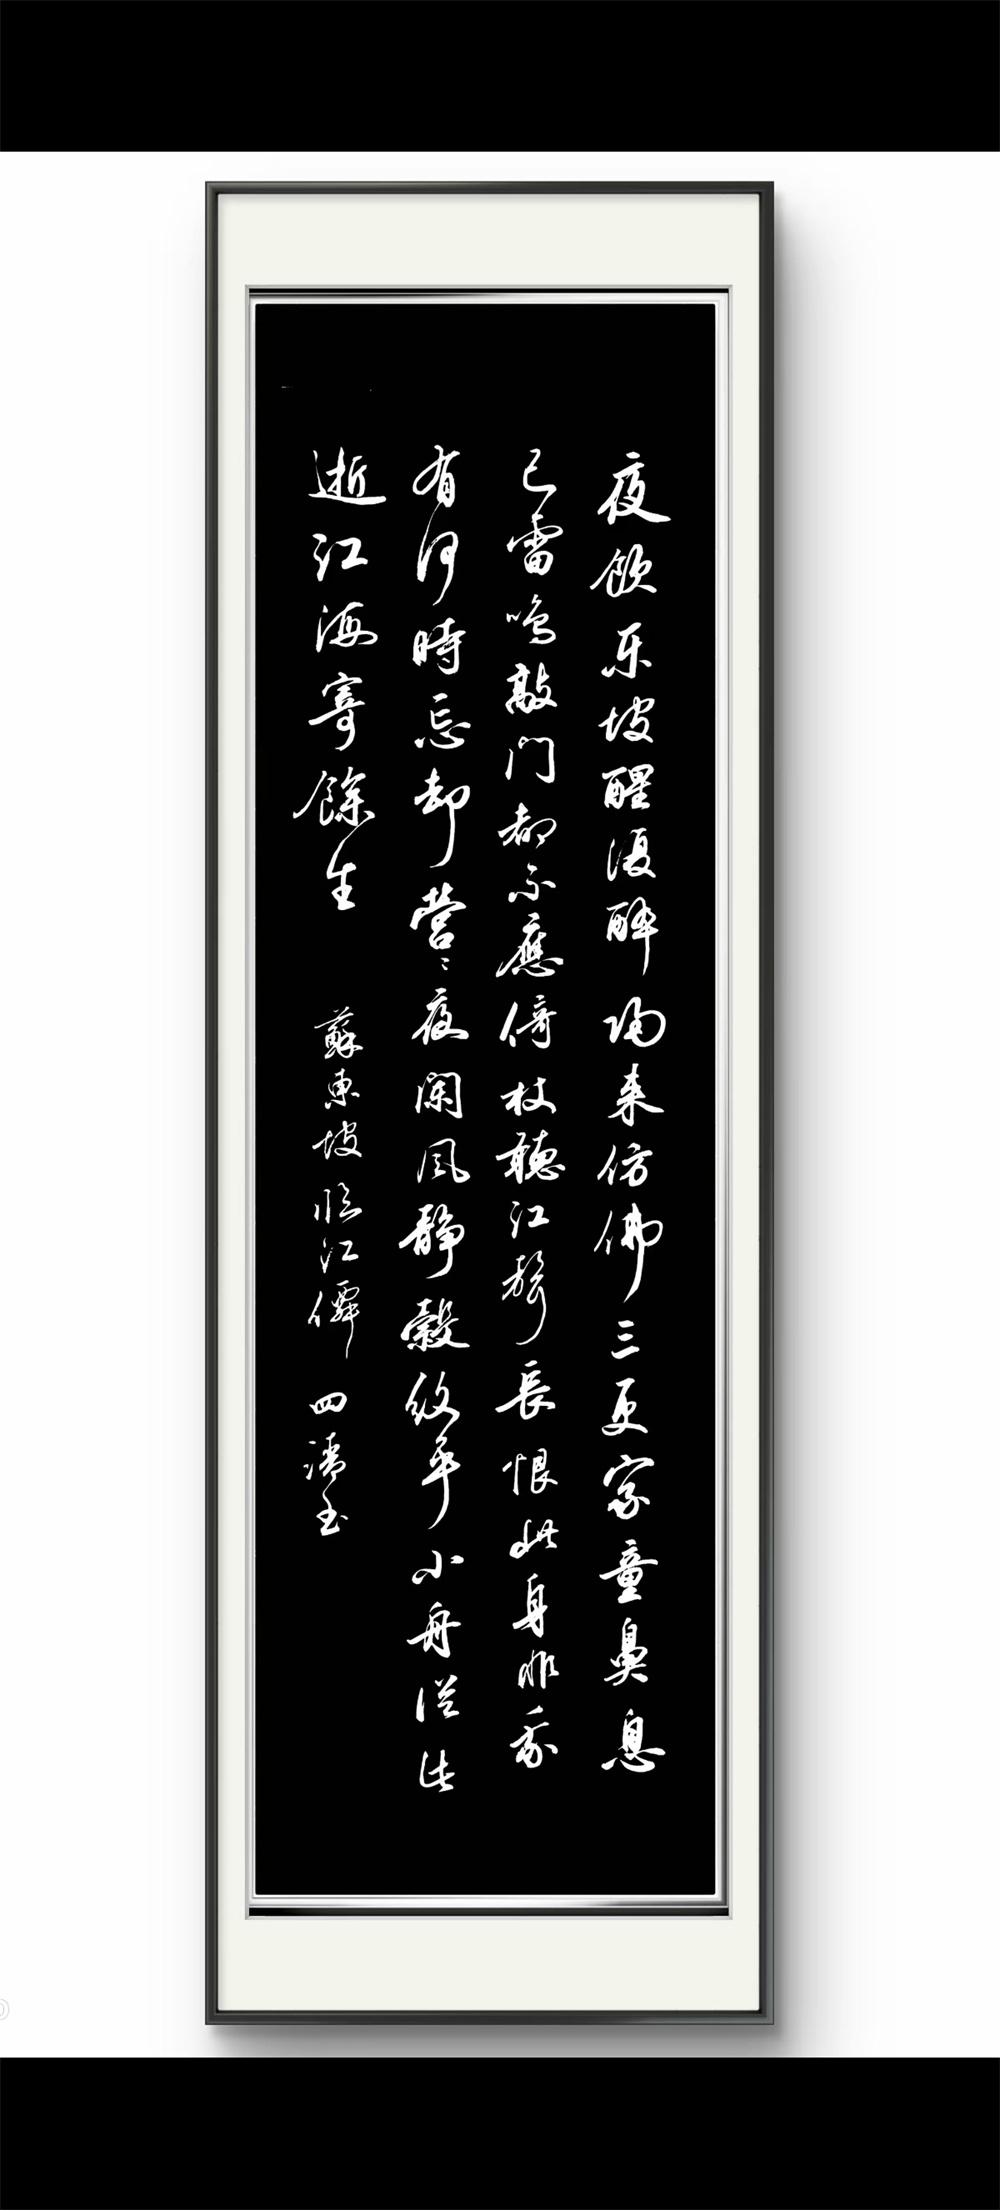 夜飲东坡醒復醉歸来仿佛三更家童鼻息
已雷鳴敲门都不應倚杖聽江聲長恨此身非我
有何時忘却营〻夜闌風靜縠紋平小舟從此
逝江海寄餘生
蘇東坡臨江僊 四清玉